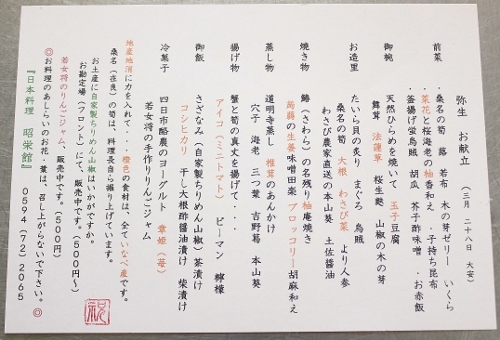 弥生 お献立 (三月 二十八日 大安)
前菜 ・桑名の筍 蕗 若布 木の芽ゼリー いくら
・菜花と桜海老の柚香和え ・子持ち昆布
・釜揚げ蛍烏賊 胡瓜 芥子酢味噌 ・お赤飯
御椀 天然ひらめを焼いて 玉子豆腐
舞茸 法蓮草 桜生麩 山椒の木の芽
お造里 たいら貝の炙り まぐろ 烏賊
桑名の筍 大根 わさび菜 より人参
わさび農家直送の本山葵 土佐醤油
焼き物 鰆(さわら)の名残り柚庵焼き
蒟蒻の生姜味噌田楽 ブロッコリー胡麻和え
蒸し物 道明寺蒸し 椎茸のあんかけ
穴子 海老 三つ葉 吉野葛 本山葵
揚げ物 蟹と筍の真丈を揚げて・・・
アイコ(ミニトマト) ピーマン 檸檬
御飯 さざなみ(自家製ちりめん山椒)茶漬け
コシヒカリ 干し大根酢醤油漬け 柴漬け
冷菓子 四日市酪農のヨーグルト 章姫(苺)
若女将の手作りりんごジャム
地産地消に力を入れて・・・橙色の食材は、全ていなべ産です。
桑名(在良)の筍は、料理長自ら掘り上げています。
お土産に自家製ちりめん山椒はいかがですか。
お勘定場(フロント)にて、販売中です。(500円~)
若女将のりんごジャム、販売中です。(500円)
◎お料理のあしらいのお花・葉は、召し上がらないで下さい。◎
『日本料理 昭栄館』 0594(72)2065